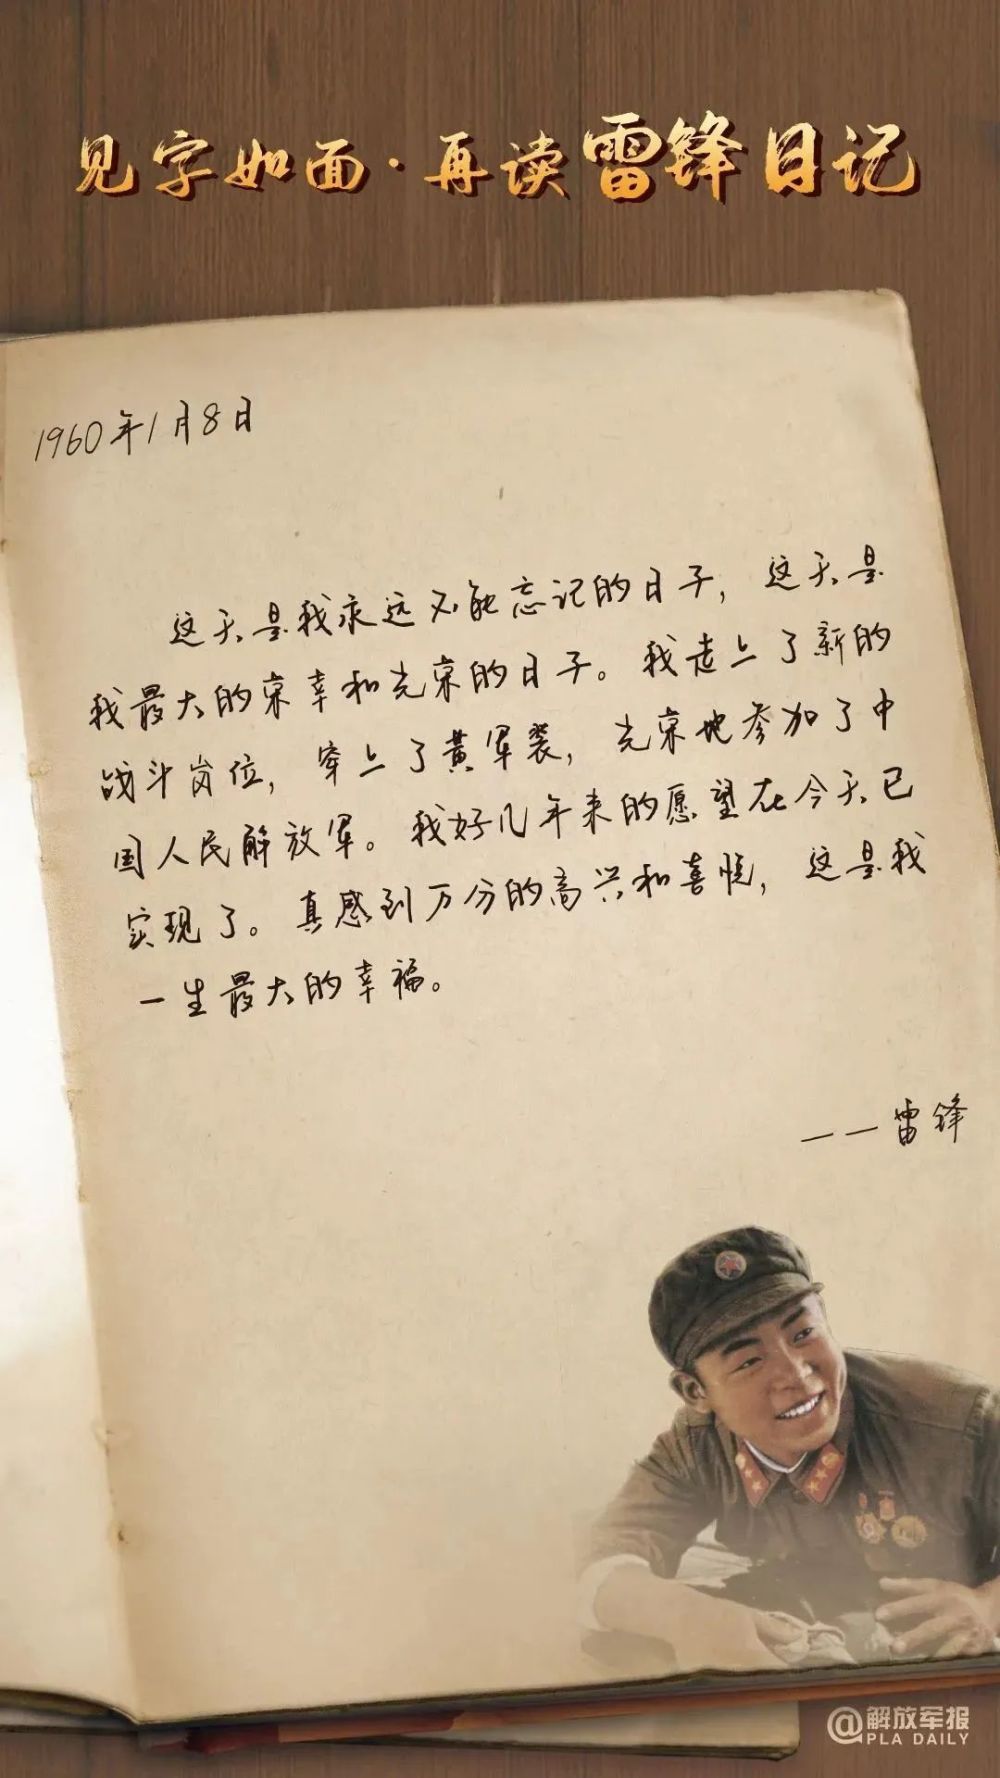 见字如面·再读雷锋日记
1960年1月8日
这天是我永远不能忘记的日子，这天是
我最大的荣幸和光荣的日子。我走上了新的
战斗岗位，穿上了黄军装，光荣地参加了中
国人民解放军。我好几年来的愿望在今天已
实现了。真感到万分的高兴和喜悦，这是我
一生最大的幸福。
——雷锋
@解放军报
PLA DAILY